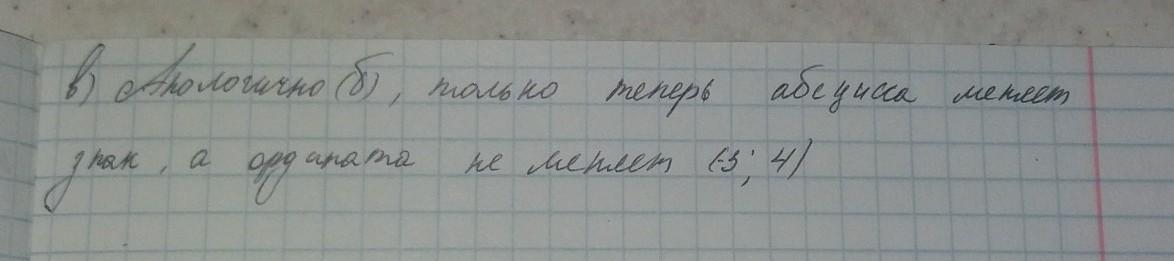 в) Анологично (б), только теперь абсцисса меняет
знак, а ордината не меняет (-3; 4)